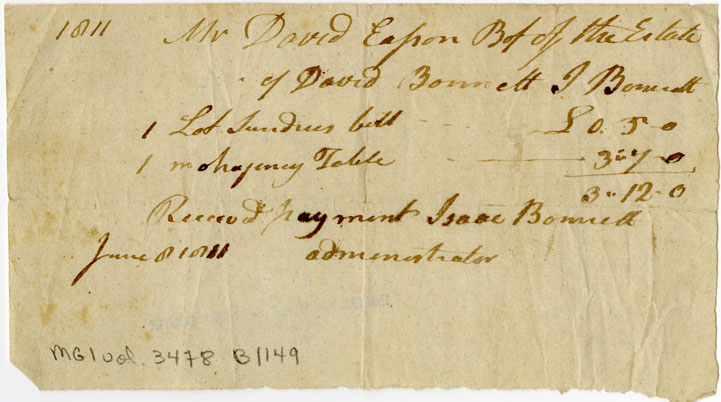 1811 Mr David Eason Bot of the Estate
of David Bonnett I Bonnett
1 Lot Sundries bell - - £ 0. 5 - 0
1 mohageney Table - — 3 " 7 - 0
3 " 12 - 0
Received payment Isaac Bonnett
June 8 1811 administrator
MG1 vol. 3478 B/149